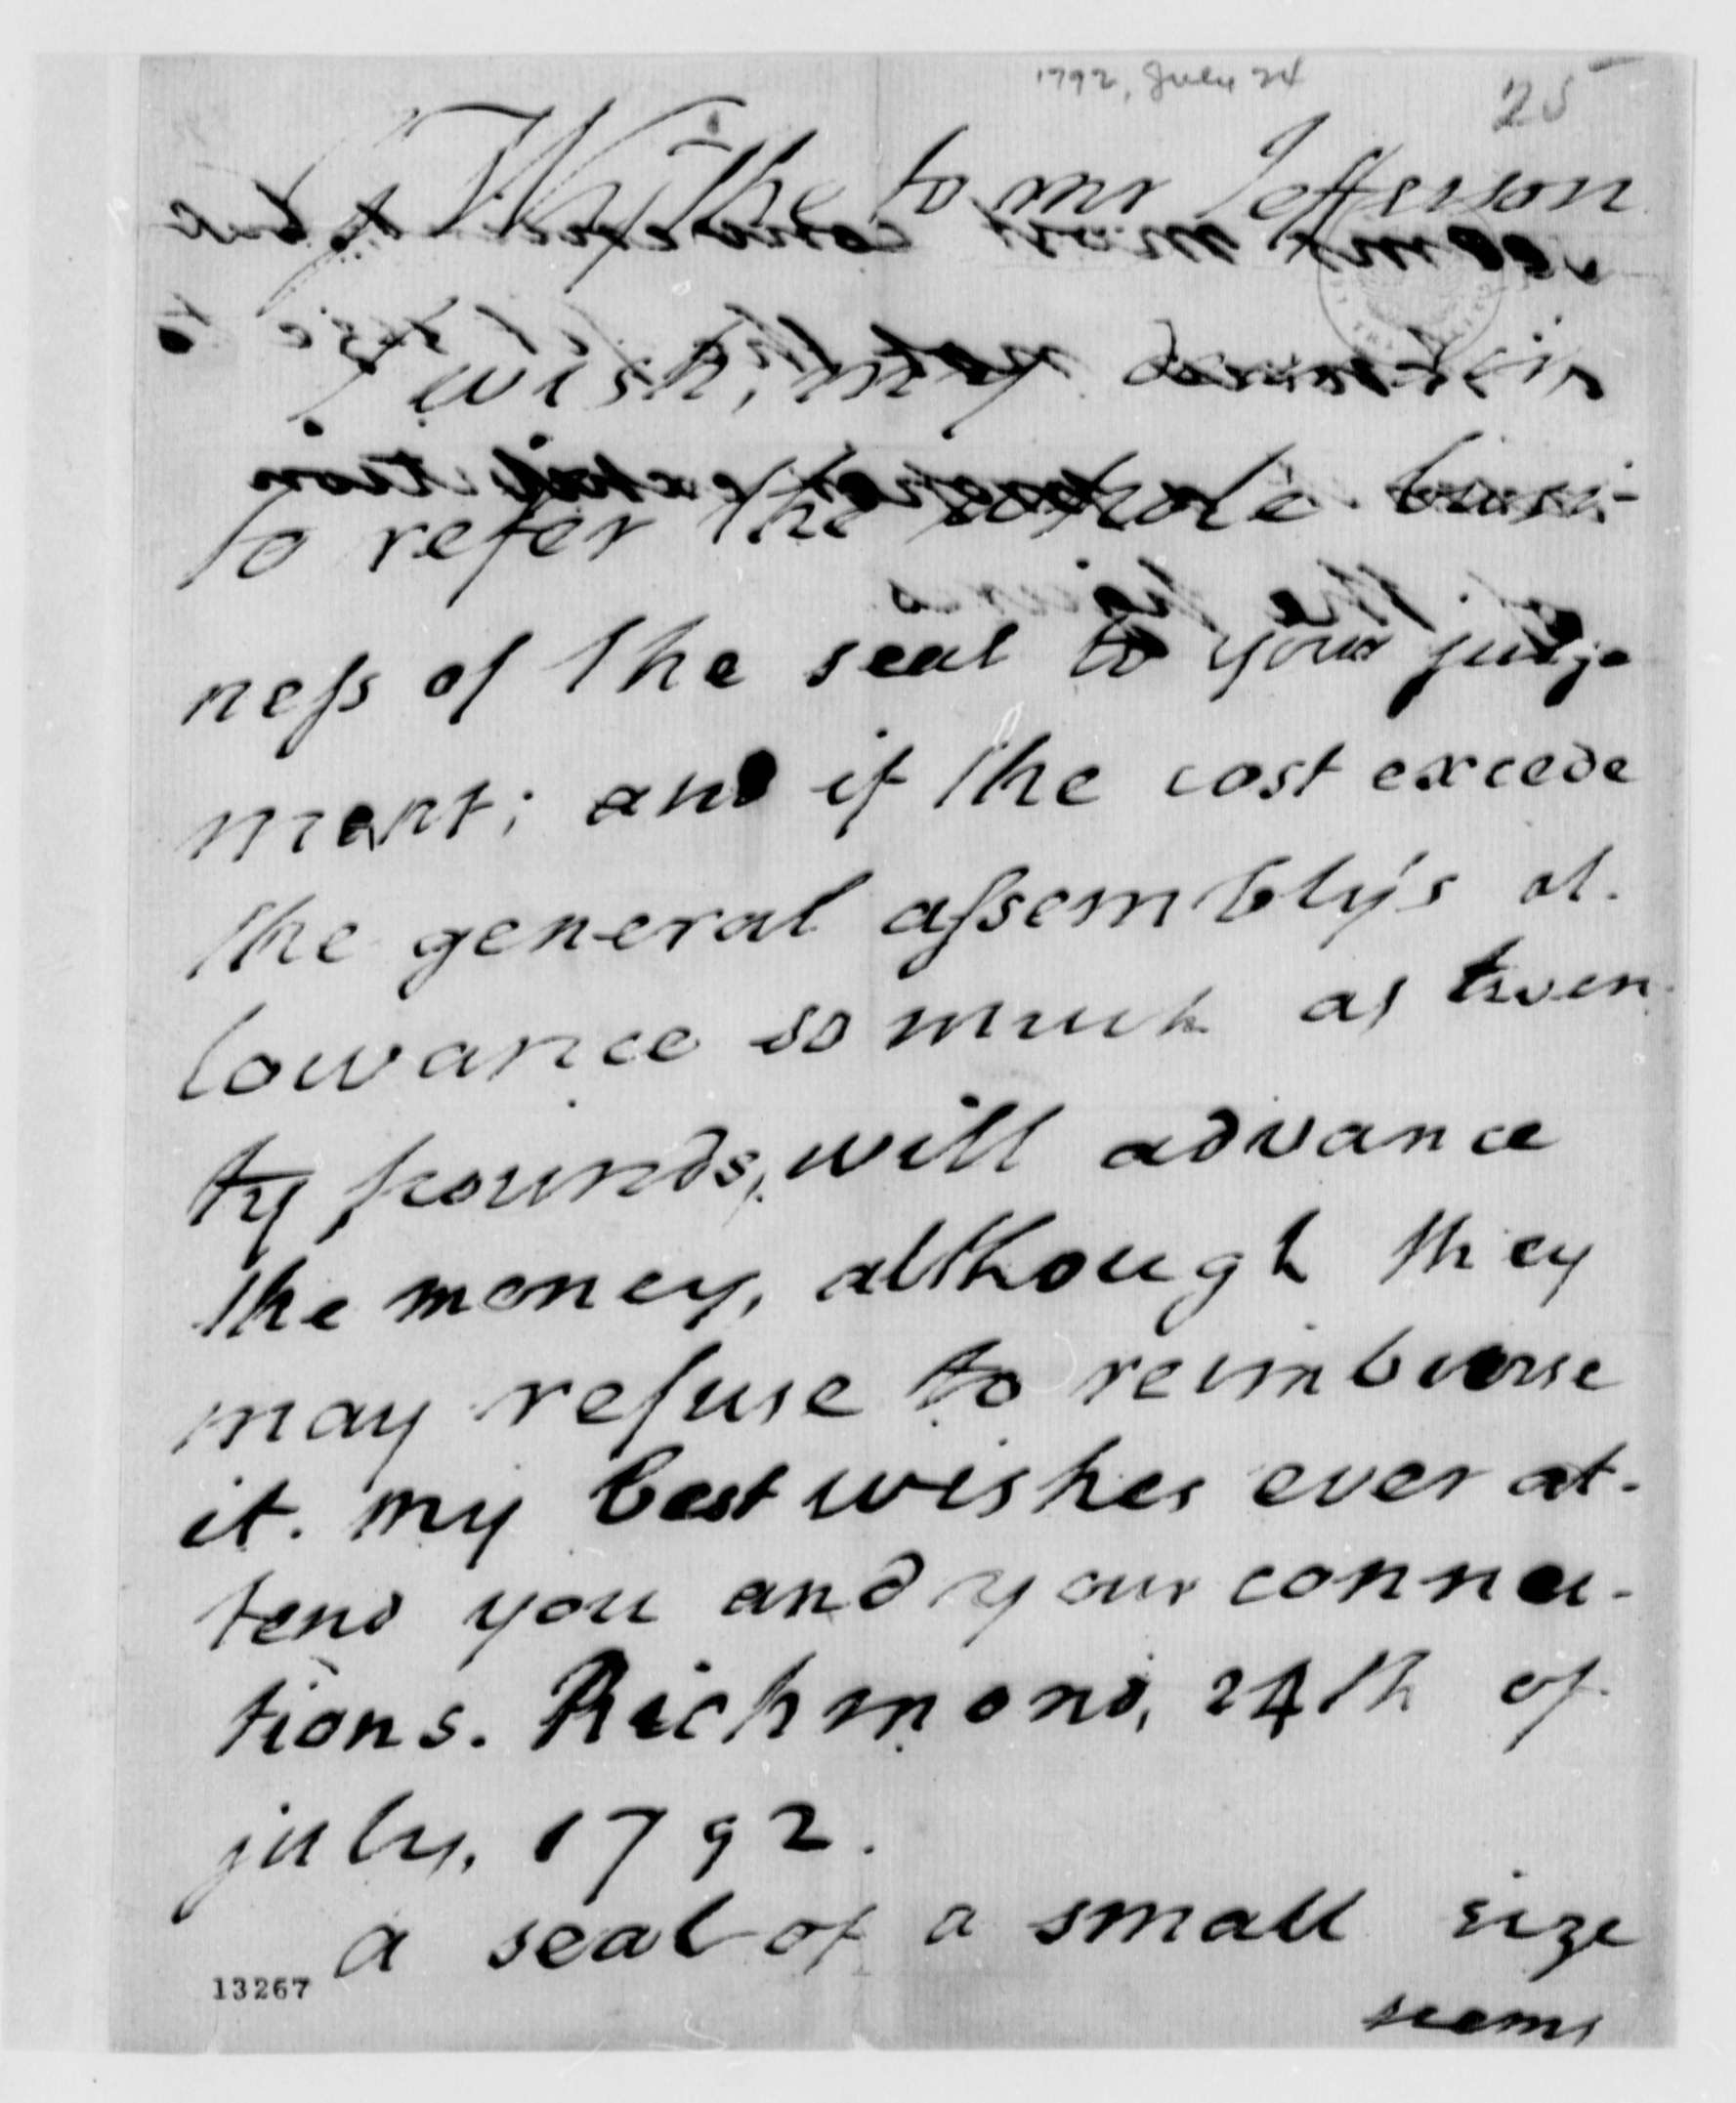 1792, July 24
25
G Wythe to mr Jefferson
I wish, my
to refer the whole busi-
neſs of the seal to your judge
ment; and if the cost excede
the general aſsembly's al.
lowance so much as twen
ty pounds, will advance
the money, although they
may refuse to reimburse
it. my best wishes ever at-
tend you and your connec-
tions. Richmond, 24th of
july, 1792.
a seal of a small size
seems
13267